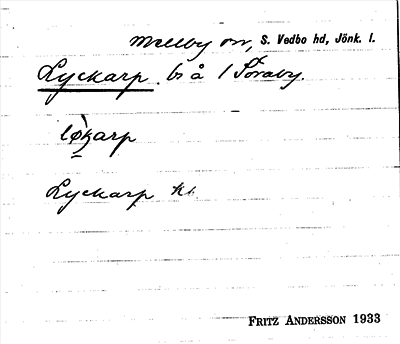 Mellby sn, S. Vedbo hd, Jönk. l.
Lyckarp bs å 1 Söraby.
Lyckarp kb.
FRITZ ANDERSSON 1933